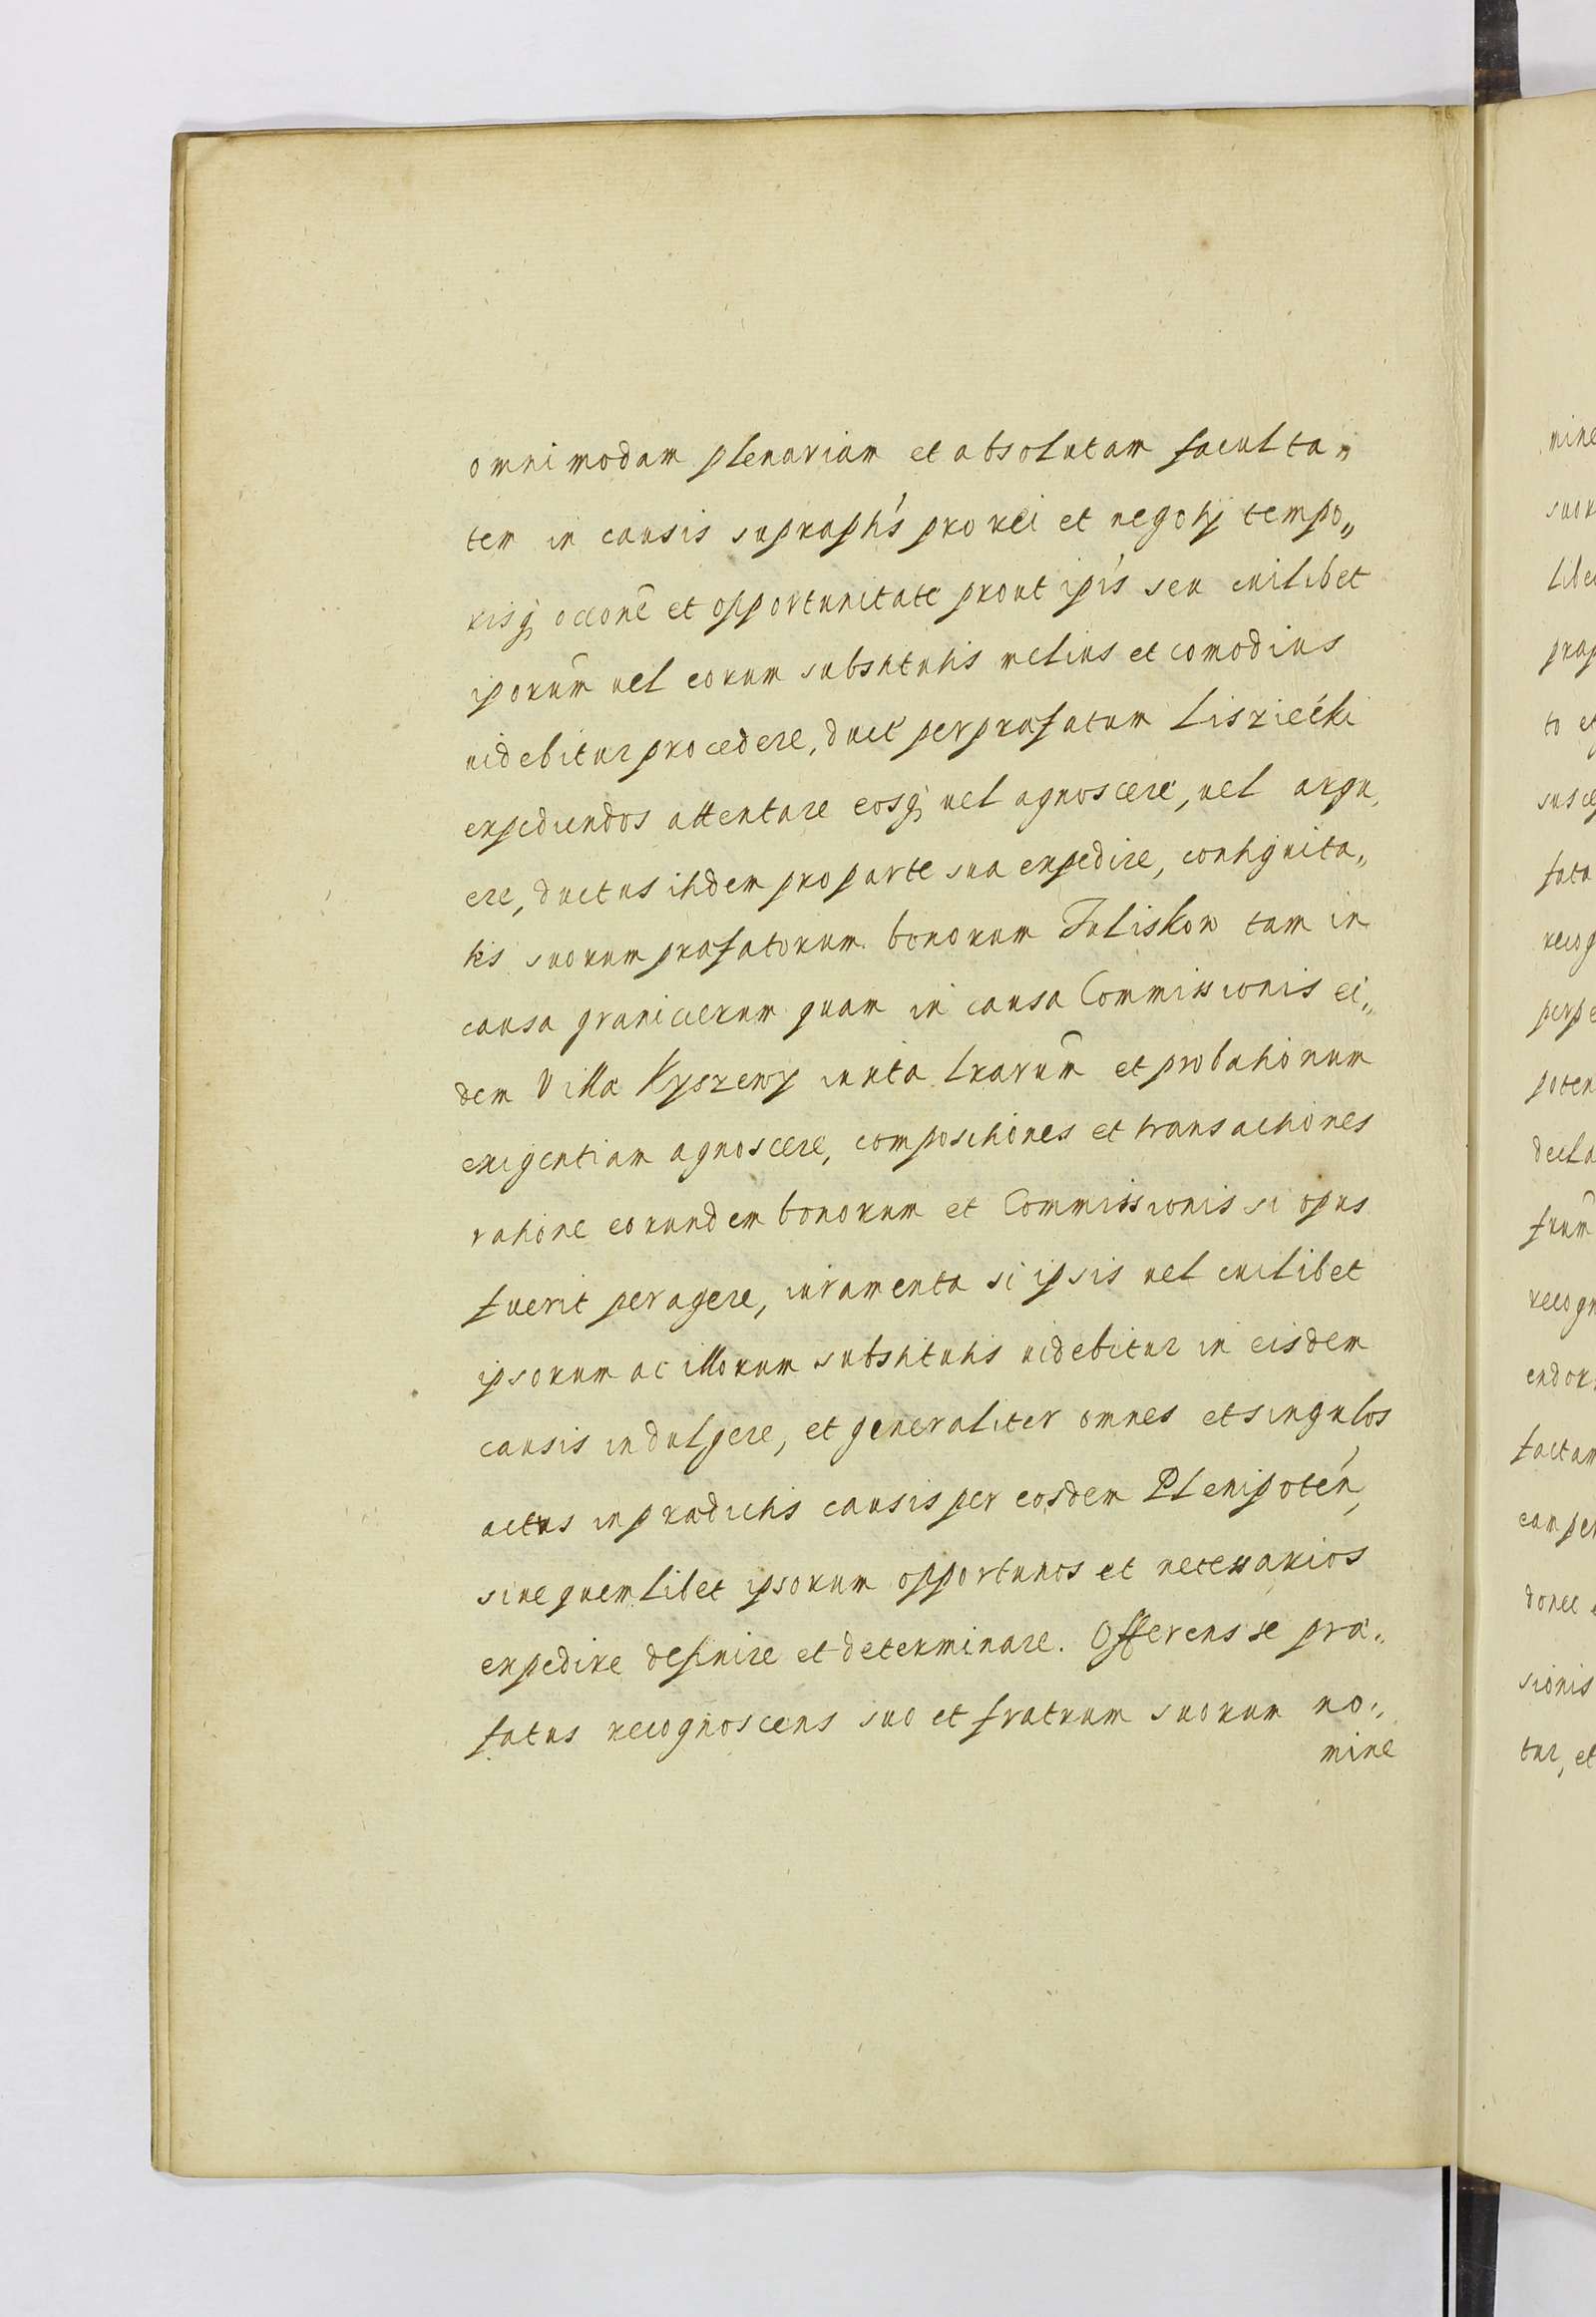 omnimodam plenariam et absolutam faculta„
tem in causis supraph's pro rei et negotij tempo„
risq; occone et opportunitate prout ip'is seu cuilibet
iporum uel eorum substitutis melius et comodius
uidebitur procedere, duct' per præfatum Lisziećki
expediendos attentare eosq; uel agnoscere, uel argu„
ere, ductus itidem pro parte sua expedire, contiguita„
tis suorum præfatorum bonorum Tuliskow tam in
causa granicierum quam in causa Commissionis ei„
dem Villæ Kyszewy iuxta lrarum et probationum
exigentiam agnoscere, compositiones et transactiones
ratione eorundem bonorum et Commissionis si opus
fuerit peragere, iuramenta si ipsis uel cuilibet
ipsorum ac illorum substitutis uidebitur in eisdem
causis indulgere, et generaliter omnes et singulos
actus in prædictis causis per eosdem Plenipotén,
siue quemlibet ipsorum opportunos et necessarios
expedire definire et determinare. Offerens se præ„
fatus recognoscens suo et fratrum suorum no„
mine
mine
suor
Libe
præp
to et
susce
fata
recog
perpe
poten
decla
frum
recogn
endor
factam
eam per
donec
sionis
tur, et